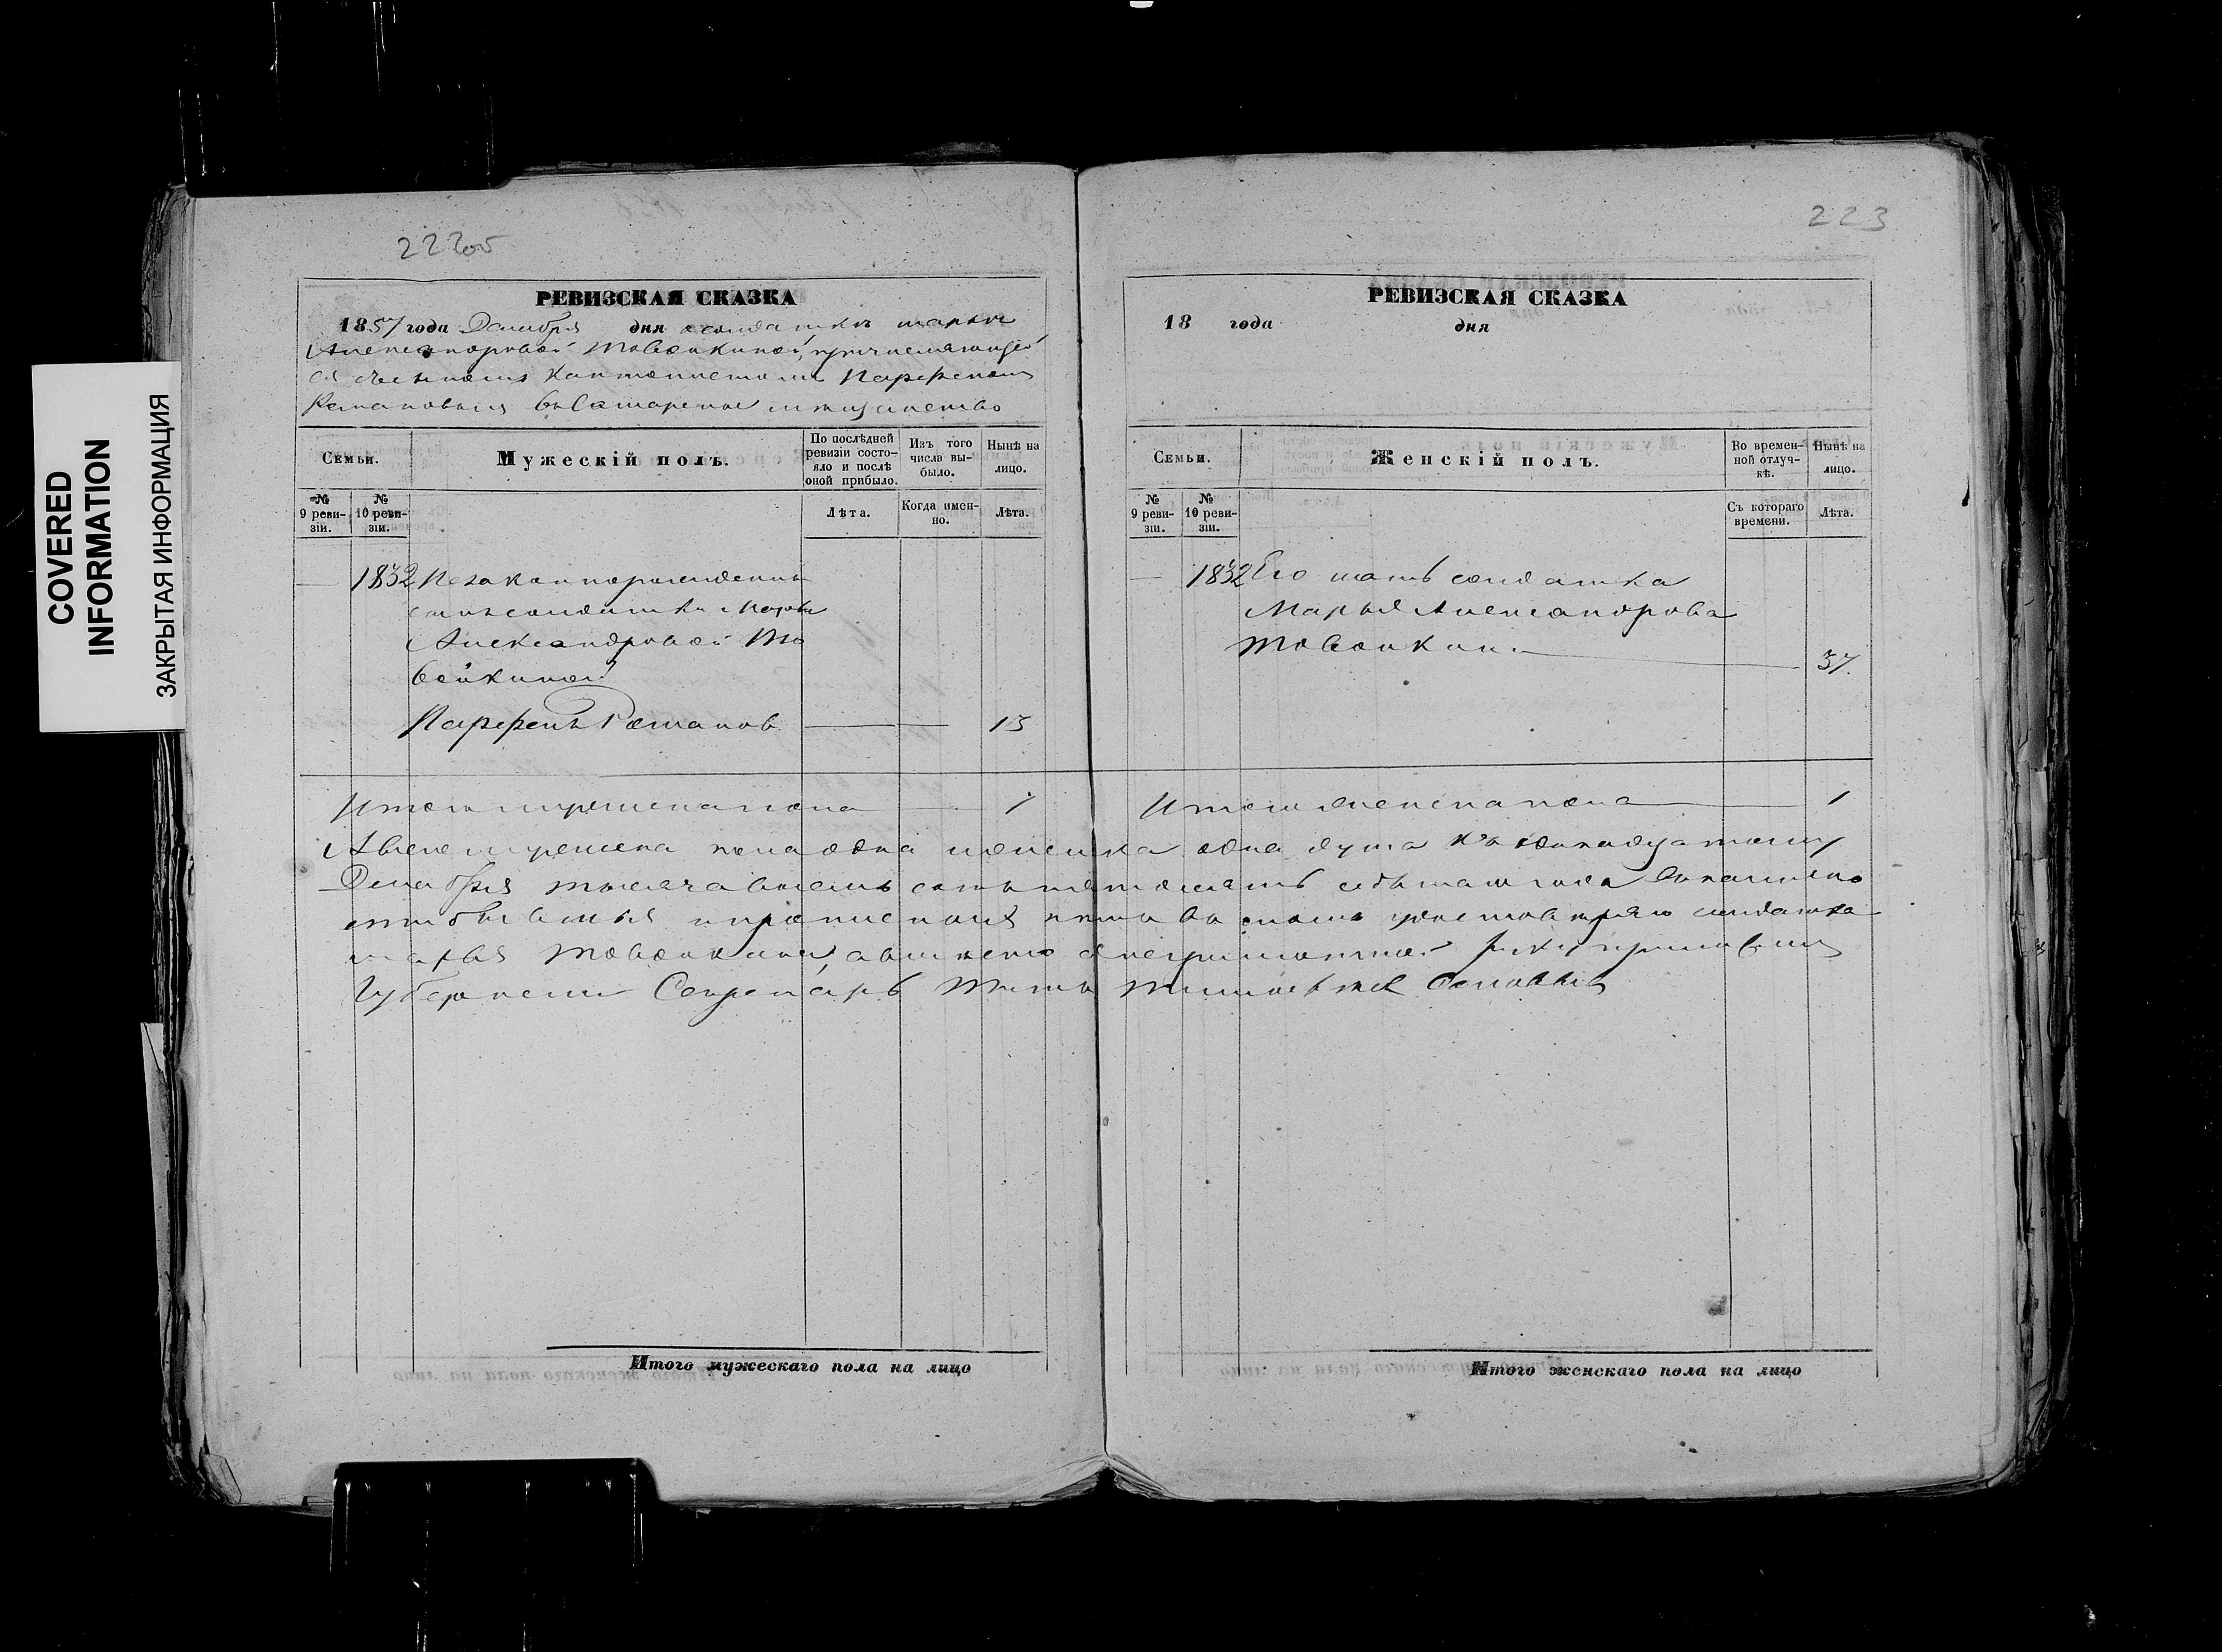 COVERED
INFORMATION
ЗАКРЫТАЯ ИНФОРМАЦИЯ
222об
РЕВИЗСКАЯ СКАЗКА
1857 года Декабря дня солдатки Марьи
Александровой Товойкиной, причисляющей
ся съ сыномъ Кантонистомъ Парфеномъ
Романовымъ въ Самарское мѣщанство
Семьи.
Мужескій полъ.
По послѣдней ревизіи состояло и послѣ оной прибыло.
Изъ того числа выбыло.
Нынѣ на лицо.
№ 9 ревизіи.
№ 10 ревизіи.
Лѣта.
Когда именно.
Лѣта.
1832 Незаконнорожденный
сынъ солдатки Марьи
Александровой То
войкиной
Парфенъ Романовъ 13
Итого мужеска пола 1
223
РЕВИЗСКАЯ СКАЗКА
18 года
дня
Семьи.
Женскій полъ.
Во временной отлучкѣ.
Нынѣ на лицо.
№ 9 ревизіи.
№ 10 ревизіи.
Съ котораго времени.
Лѣта.
1832 Его мать солдатка
Марья Александрова
Товойкина 37
Итого женска пола 1
А всего мужеска пола одна женска одна душа къ
Декабря тысяча восемь сотъ пятьдесятъ седьмаго года
солдатка
Марья Товойкина, а вмѣсто ея неграмотной руку приложилъ
Губернскій Секретарь
Итого мужескаго пола на лицо
Итого женскаго пола на лицо